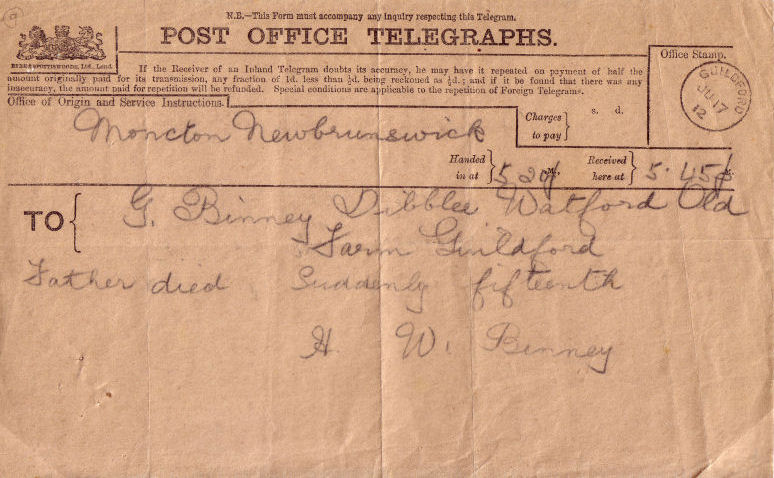 N.B.—This Form must accompany any inquiry respecting this Telegram.
POST OFFICE TELEGRAPHS.
If the Receiver of an Inland Telegram doubts its accuracy, he may have it repeated on payment of half the
amount originally paid for its transmission, any fraction of 1d. less than ½d. being reckoned as ½d.; and if it be found that there was any
inaccuracy, the amount paid for repetition will be refunded. Special conditions are applicable to the repetition of Foreign Telegrams.
Office Stamp.
GUILDFORD
JU 17
12
Office of Origin and Service Instructions.
Moncton Newbrunswick
Charges
to pay
s. d.
Handed
in at
5 20
Received
here at
5.45
TO
G. Binney Dibblee Watford Old
Farm Guildford
Father died Suddenly fifteenth
H. W. Binney